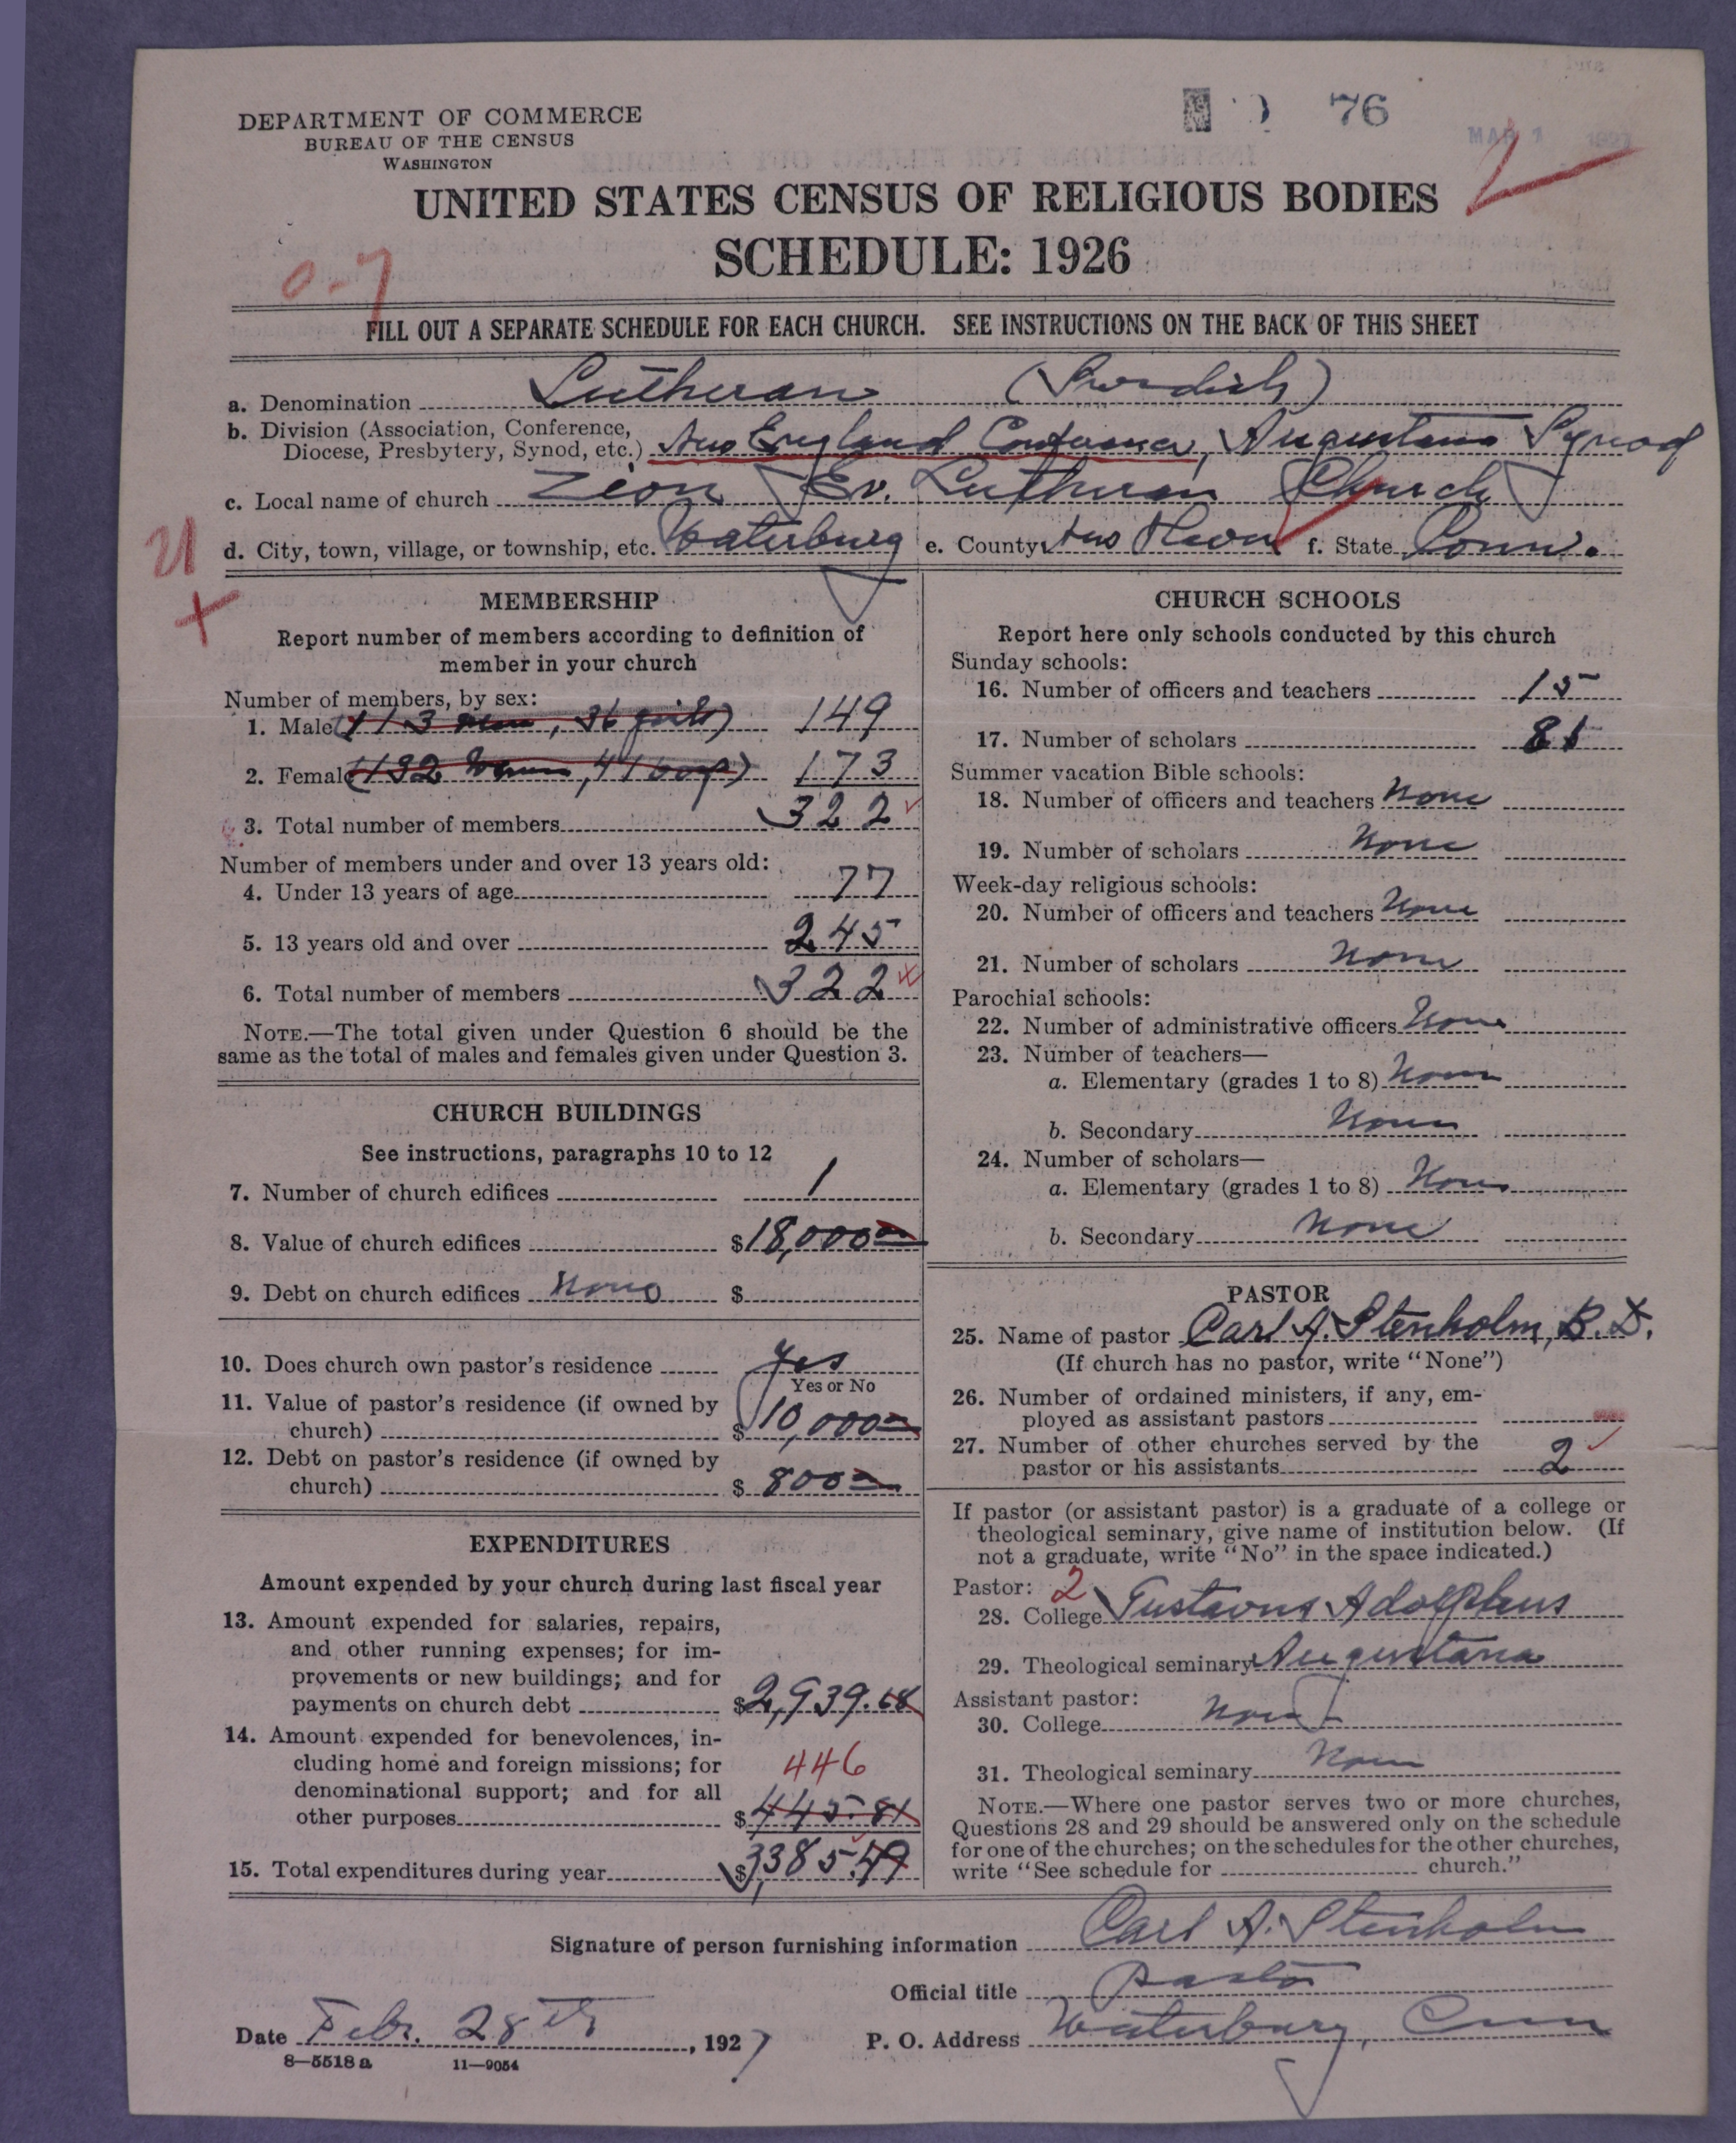 DEPARTMENT OF COMMERCE
BUREAU OF THE CENSUS
WASHINGTON
76
MAR 1 1927
UNITED STATES CENSUS OF RELIGIOUS BODIES
SCHEDULE: 1926
0-7
FILL OUT A SEPARATE SCHEDULE FOR EACH CHURCH. SEE INSTRUCTIONS ON THE BACK OF THIS SHEET
a. Denomination Lutheran (Swedish)
b. Division (Association, Conference,
Diocese, Presbytery, Synod, etc.) New England Conference, Augustana Synod
c. Local name of church Zion Ev. Lutheran Church
21
d. City, town, village, or township, etc. Waterbury e. County New Haven f. State Conn.
MEMBERSHIP
Report number of members according to definition of
member in your church
Number of members, by sex:
1. Male (113 men, 36 girls) 149
2. Female (132 women, 41 boys) 173
3. Total number of members 322
Number of members under and over 13 years old:
4. Under 13 years of age 77
5. 13 years old and over 245
6. Total number of members 322
NOTE.—The total given under Question 6 should be the
same as the total of males and females given under Question 3.
CHURCH BUILDINGS
See instructions, paragraphs 10 to 12
7. Number of church edifices 1
8. Value of church edifices $18,000
9. Debt on church edifices None $
10. Does church own pastor's residence Yes
Yes or No
11. Value of pastor's residence (if owned by
church) $10,000
12. Debt on pastor's residence (if owned by
church) $800
EXPENDITURES
Amount expended by your church during last fiscal year
13. Amount expended for salaries, repairs,
and other running expenses; for im-
provements or new buildings; and for
payments on church debt $2,939.68
14. Amount expended for benevolences, in-
cluding home and foreign missions; for 446
denominational support; and for all
other purposes $445.81
15. Total expenditures during year $3,385.49
CHURCH SCHOOLS
Report here only schools conducted by this church
Sunday schools:
16. Number of officers and teachers 15
17. Number of scholars 81
Summer vacation Bible schools:
18. Number of officers and teachers None
19. Number of scholars None
Week-day religious schools:
20. Number of officers and teachers None
21. Number of scholars None
Parochial schools:
22. Number of administrative officers None
23. Number of teachers—
a. Elementary (grades 1 to 8) None
b. Secondary None
24. Number of scholars—
a. Elementary (grades 1 to 8) None
b. Secondary None
PASTOR
25. Name of pastor Carl A. Stenholm, B.D.
(If church has no pastor, write "None")
26. Number of ordained ministers, if any, em-
ployed as assistant pastors
27. Number of other churches served by the
pastor or his assistants 2
If pastor (or assistant pastor) is a graduate of a college or
theological seminary, give name of institution below. (If
not a graduate, write "No" in the space indicated.)
Pastor: 2
28. College Gustavus Adolphus
29. Theological seminary Augustana
Assistant pastor:
30. College None
31. Theological seminary None
NOTE.—Where one pastor serves two or more churches,
Questions 28 and 29 should be answered only on the schedule
for one of the churches; on the schedules for the other churches,
write "See schedule for church."
Signature of person furnishing information Carl A. Stenholm
Official title Pastor
Date Febr. 28th, 1927 P. O. Address Waterbury, Conn
8—5518 a 11—9054